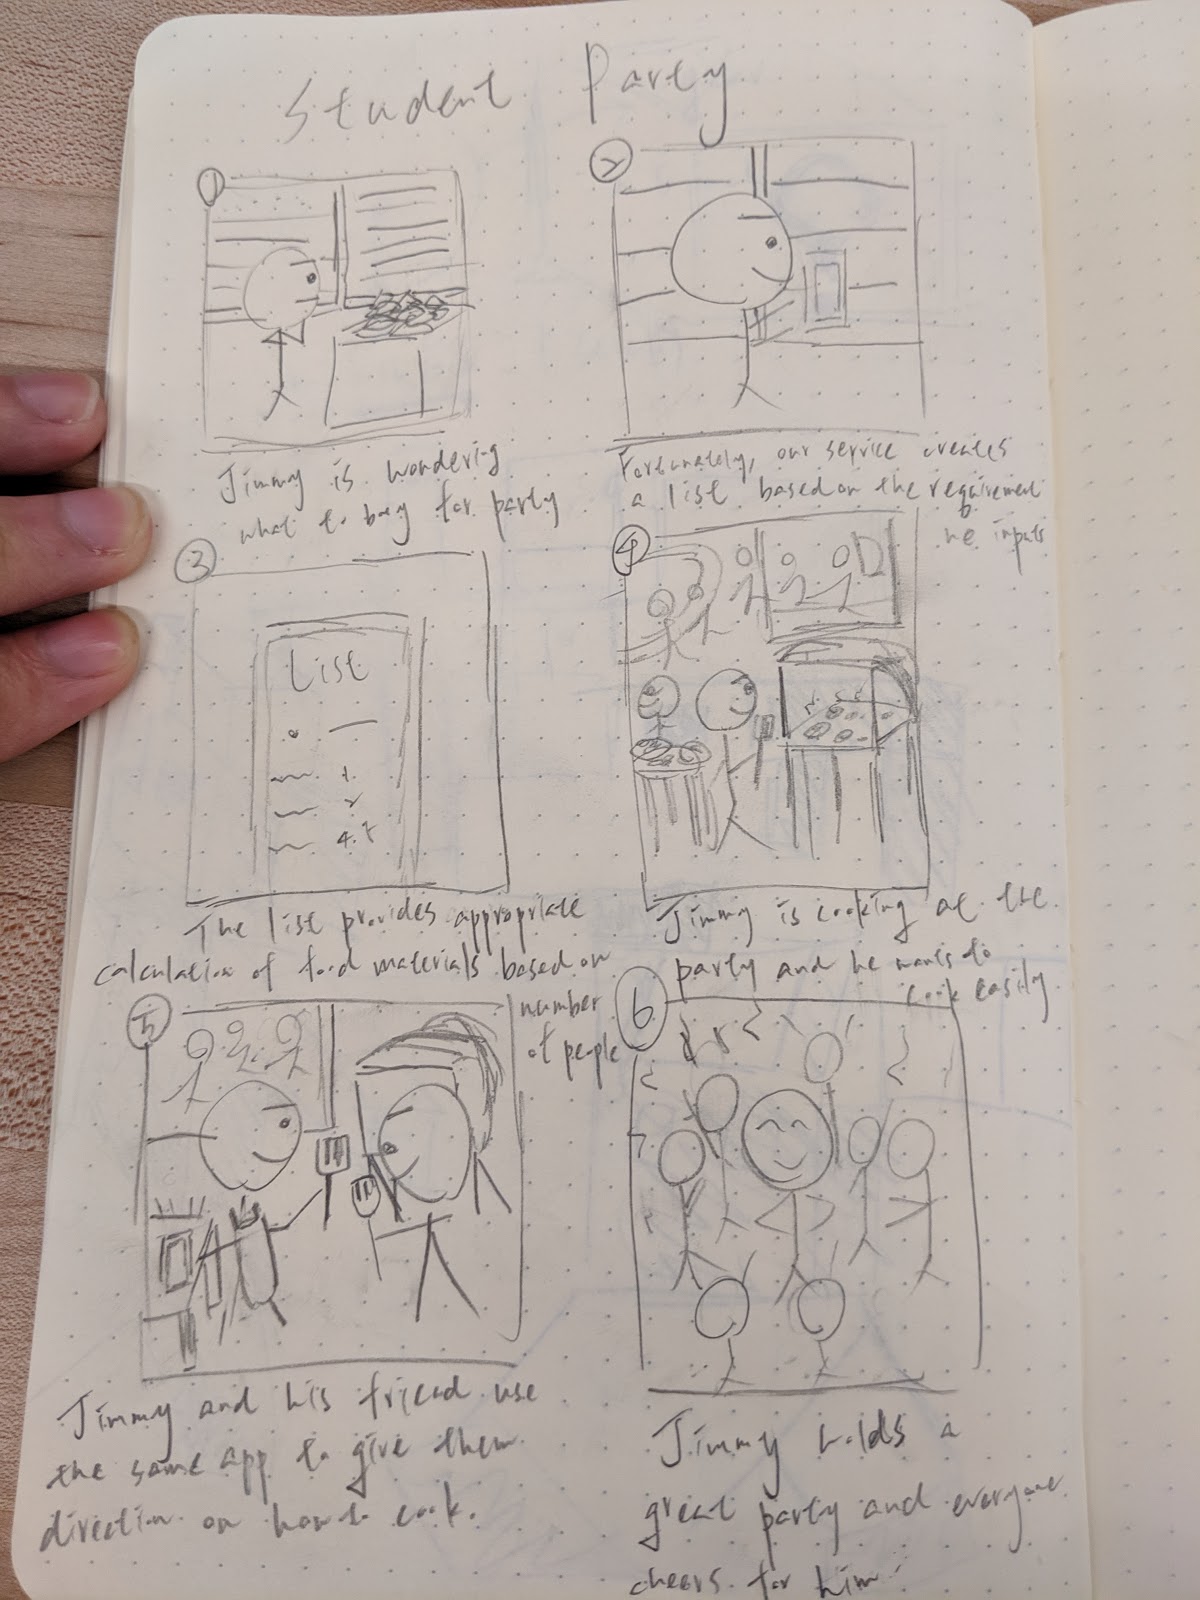 Student Party
1
Jimmy is wondering
what to buy for party
2
Fortunately, our service creates
a list based on the requirement
he inputs
3
List
1
2
The list provides appropriate
calculation of food materials based on
number
of people
4
Jimmy is cooking at the
party and he wants to
cook easily
5
Jimmy and his friend use
the same app to give them
direction on how to cook.
6
Jimmy holds a
great party and everyone
cheers for him